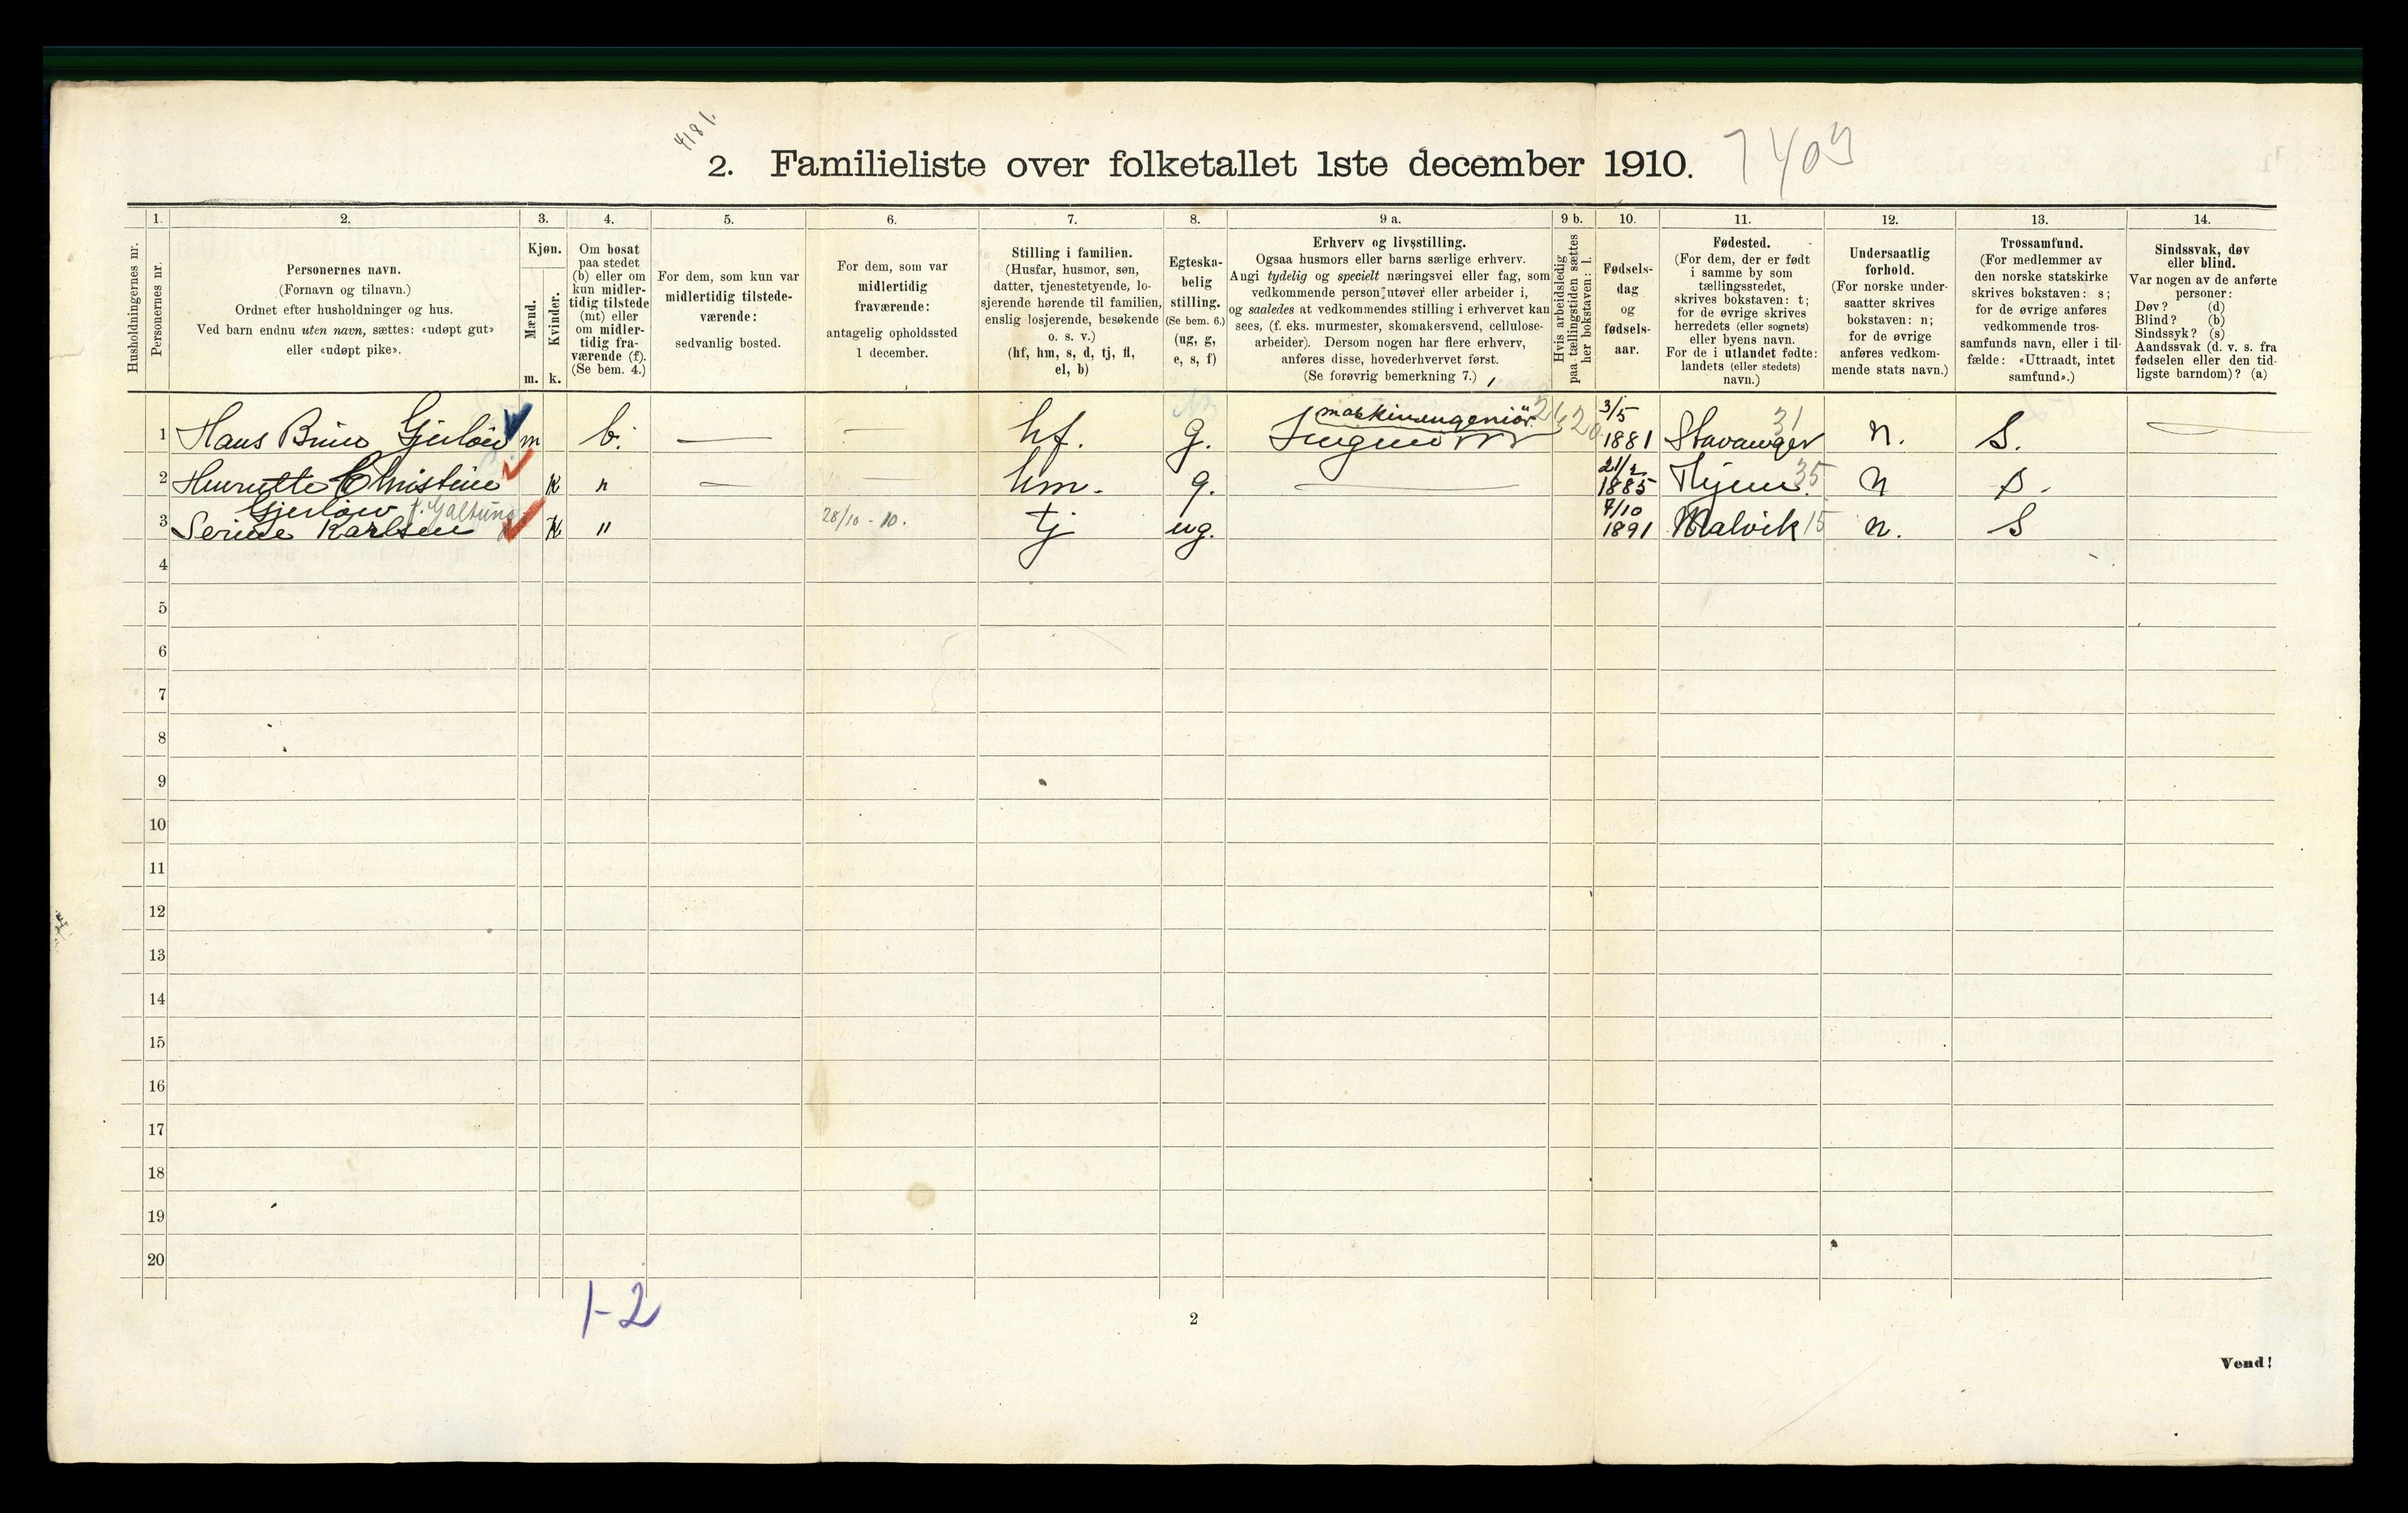 4181.
2. Familieliste over folketallet 1ste december 1910. 7409
1. 2. 3. 4. 5. 6. 7. 8. 9 a. 9 b. 10. 11. 12. 13. 14.
Husholdningernes nr.
Personernes nr.
Personernes navn.
(Fornavn og tilnavn.)
Ordnet efter husholdninger og hus.
Ved barn endnu uten navn, sættes: «udøpt gut»
eller «udøpt pike».
Kjøn.
Mænd.
m.
Kvinder.
k.
Om bosat
paa stedet
(b) eller om
kun midler-
tidig tilstede
(mt) eller
om midler-
tidig fra-
værende (f).
(Se bem. 4.)
For dem, som kun var
midlertidig tilstede-
værende:
sedvanlig bosted.
For dem, som var
midlertidig
fraværende:
antagelig opholdssted
1 december.
Stilling i familien.
(Husfar, husmor, søn,
datter, tjenestetyende, lo-
sjerende hørende til familien,
enslig losjerende, besøkende
o. s. v.)
(hf, hm, s, d, tj, fl,
el, b)
Egteska-
belig
stilling.
(Se bem. 6.)
(ug, g,
e, s, f)
Erhverv og livsstilling.
Ogsaa husmors eller barns særlige erhverv.
Angi tydelig og specielt næringsvei eller fag, som
vedkommende person utøver eller arbeider i,
og saaledes at vedkommendes stilling i erhvervet kan
sees, (f. eks. murmester, skomakersvend, cellulose-
arbeider). Dersom nogen har flere erhverv,
anføres disse, hovederhvervet først.
(Se forøvrig bemerkning 7.)
Hvis arbeidsledig
paa tællingstiden sættes
her bokstaven: l.
Fødsels-
dag
og
fødsels-
aar.
Fødested.
(For dem, der er født
i samme by som
tællingsstedet,
skrives bokstaven: t;
for de øvrige skrives
herredets (eller sognets)
eller byens navn.
For de i utlandet fødte:
landets (eller stedets)
navn.)
Undersaatlig
forhold.
(For norske under-
saatter skrives
bokstaven: n;
for de øvrige
anføres vedkom-
mende stats navn.)
Trossamfund.
(For medlemmer av
den norske statskirke
skrives bokstaven: s;
for de øvrige anføres
vedkommende tros-
samfunds navn, eller i til-
fælde: «Uttraadt, intet
samfund».)
Sindssvak, døv
eller blind.
Var nogen av de anførte
personer:
Døv? (d)
Blind? (b)
Sindssyk? (s)
Aandssvak (d. v. s. fra
fødselen eller den tid-
ligste barndom)? (a)
maskiningeniör 3/5 31
1 Hans Bruno Gjerløw m b. — — hf. g. Ingeniör 1881 Stavanger n. S. —
21/2
2 Henriette Christine k " — — hm. g. — 1885 Hjem. 35 n s.
Gjerløw f. Galtung 7/10
3 Serine Karlsen k " 28/10 - 10. tj ug. 1891 Malvik 15 n. S
4
5
6
7
8
9
10
11
12
13
14
15
16
17
18
19
20
1-2
2
Vend!